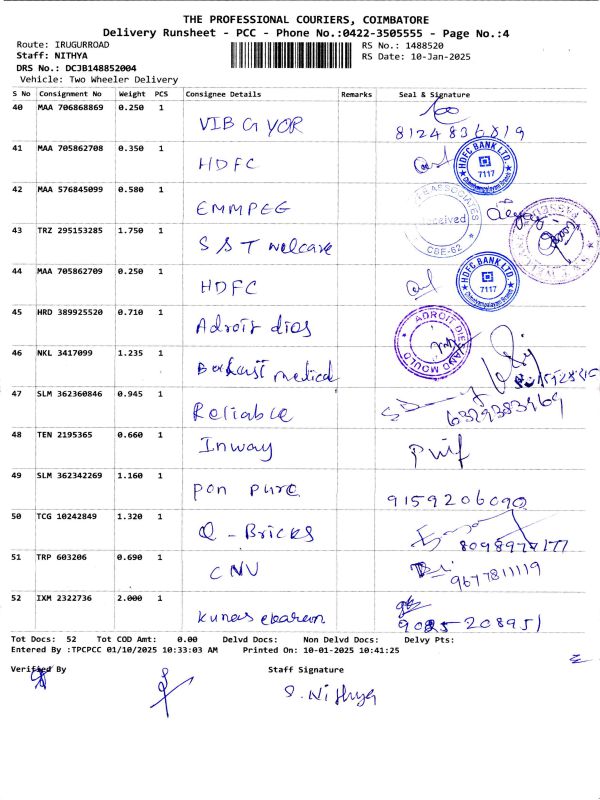 THE PROFESSIONAL COURIERS, COIMBATORE
Delivery Runsheet - PCC - Phone No.:0422-3505555 - Page No.:4
Route: IRUGURROAD RS No.: 1488520
Staff: NITHYA RS Date: 10-Jan-2025
DRS No.: DCJB148852004
Vehicle: Two Wheeler Delivery
S No Consignment No Weight PCS Consignee Details Remarks Seal & Signature
40 MAA 706868869 0.250 1
VIB G YOR 8124836819
41 MAA 705862708 0.350 1
HDFC HDFC BANK LTD. 7117
42 MAA 576845099 0.580 1
EMMPEG ASSOCIATES Received CBE-62
43 TRZ 295153285 1.750 1
S S T welcare
44 MAA 705862709 0.250 1
HDFC HDFC BANK LTD. 7117
45 HRD 389925520 0.710 1
Adroit dias ADROIT DIE AND MOULD
46 NKL 3417099 1.235 1
medical
47 SLM 362360846 0.945 1
Reliable 6329383969
48 TEN 2195365 0.660 1
Inway
49 SLM 362342269 1.160 1
pon pure 9159206090
50 TCG 10242849 1.320 1
Q - Bricks
51 TRP 603206 0.690 1
CNV 9677811119
52 IXM 2322736 2.000 1
9025-208951
Tot Docs: 52 Tot COD Amt: 0.00 Delvd Docs: Non Delvd Docs: Delvy Pts:
Entered By :TPCPCC 01/10/2025 10:33:03 AM Printed On: 10-01-2025 10:41:25
Verified By Staff Signature
S. Nithya